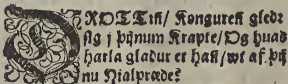 DROTTiñ/ Kongureñ gledr
sig j þijnum Krapte/ Og huad
harla gladur er hañ/ wt af þij
nu Hialpræde?